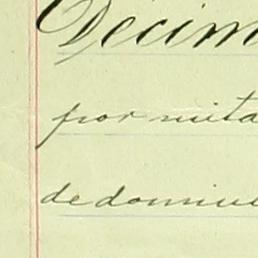 Décim
por mita
de domini